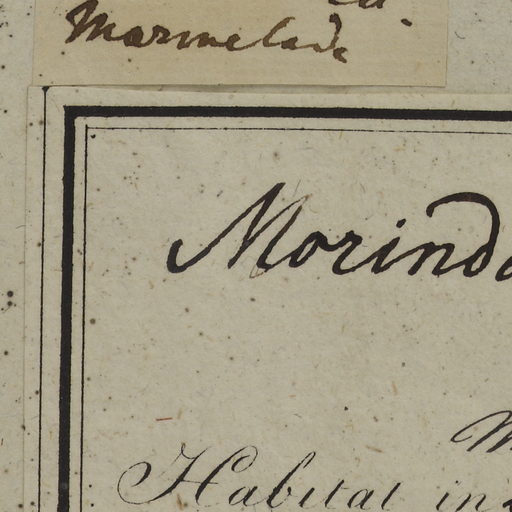 Marmelade
Morinda
Habitat in